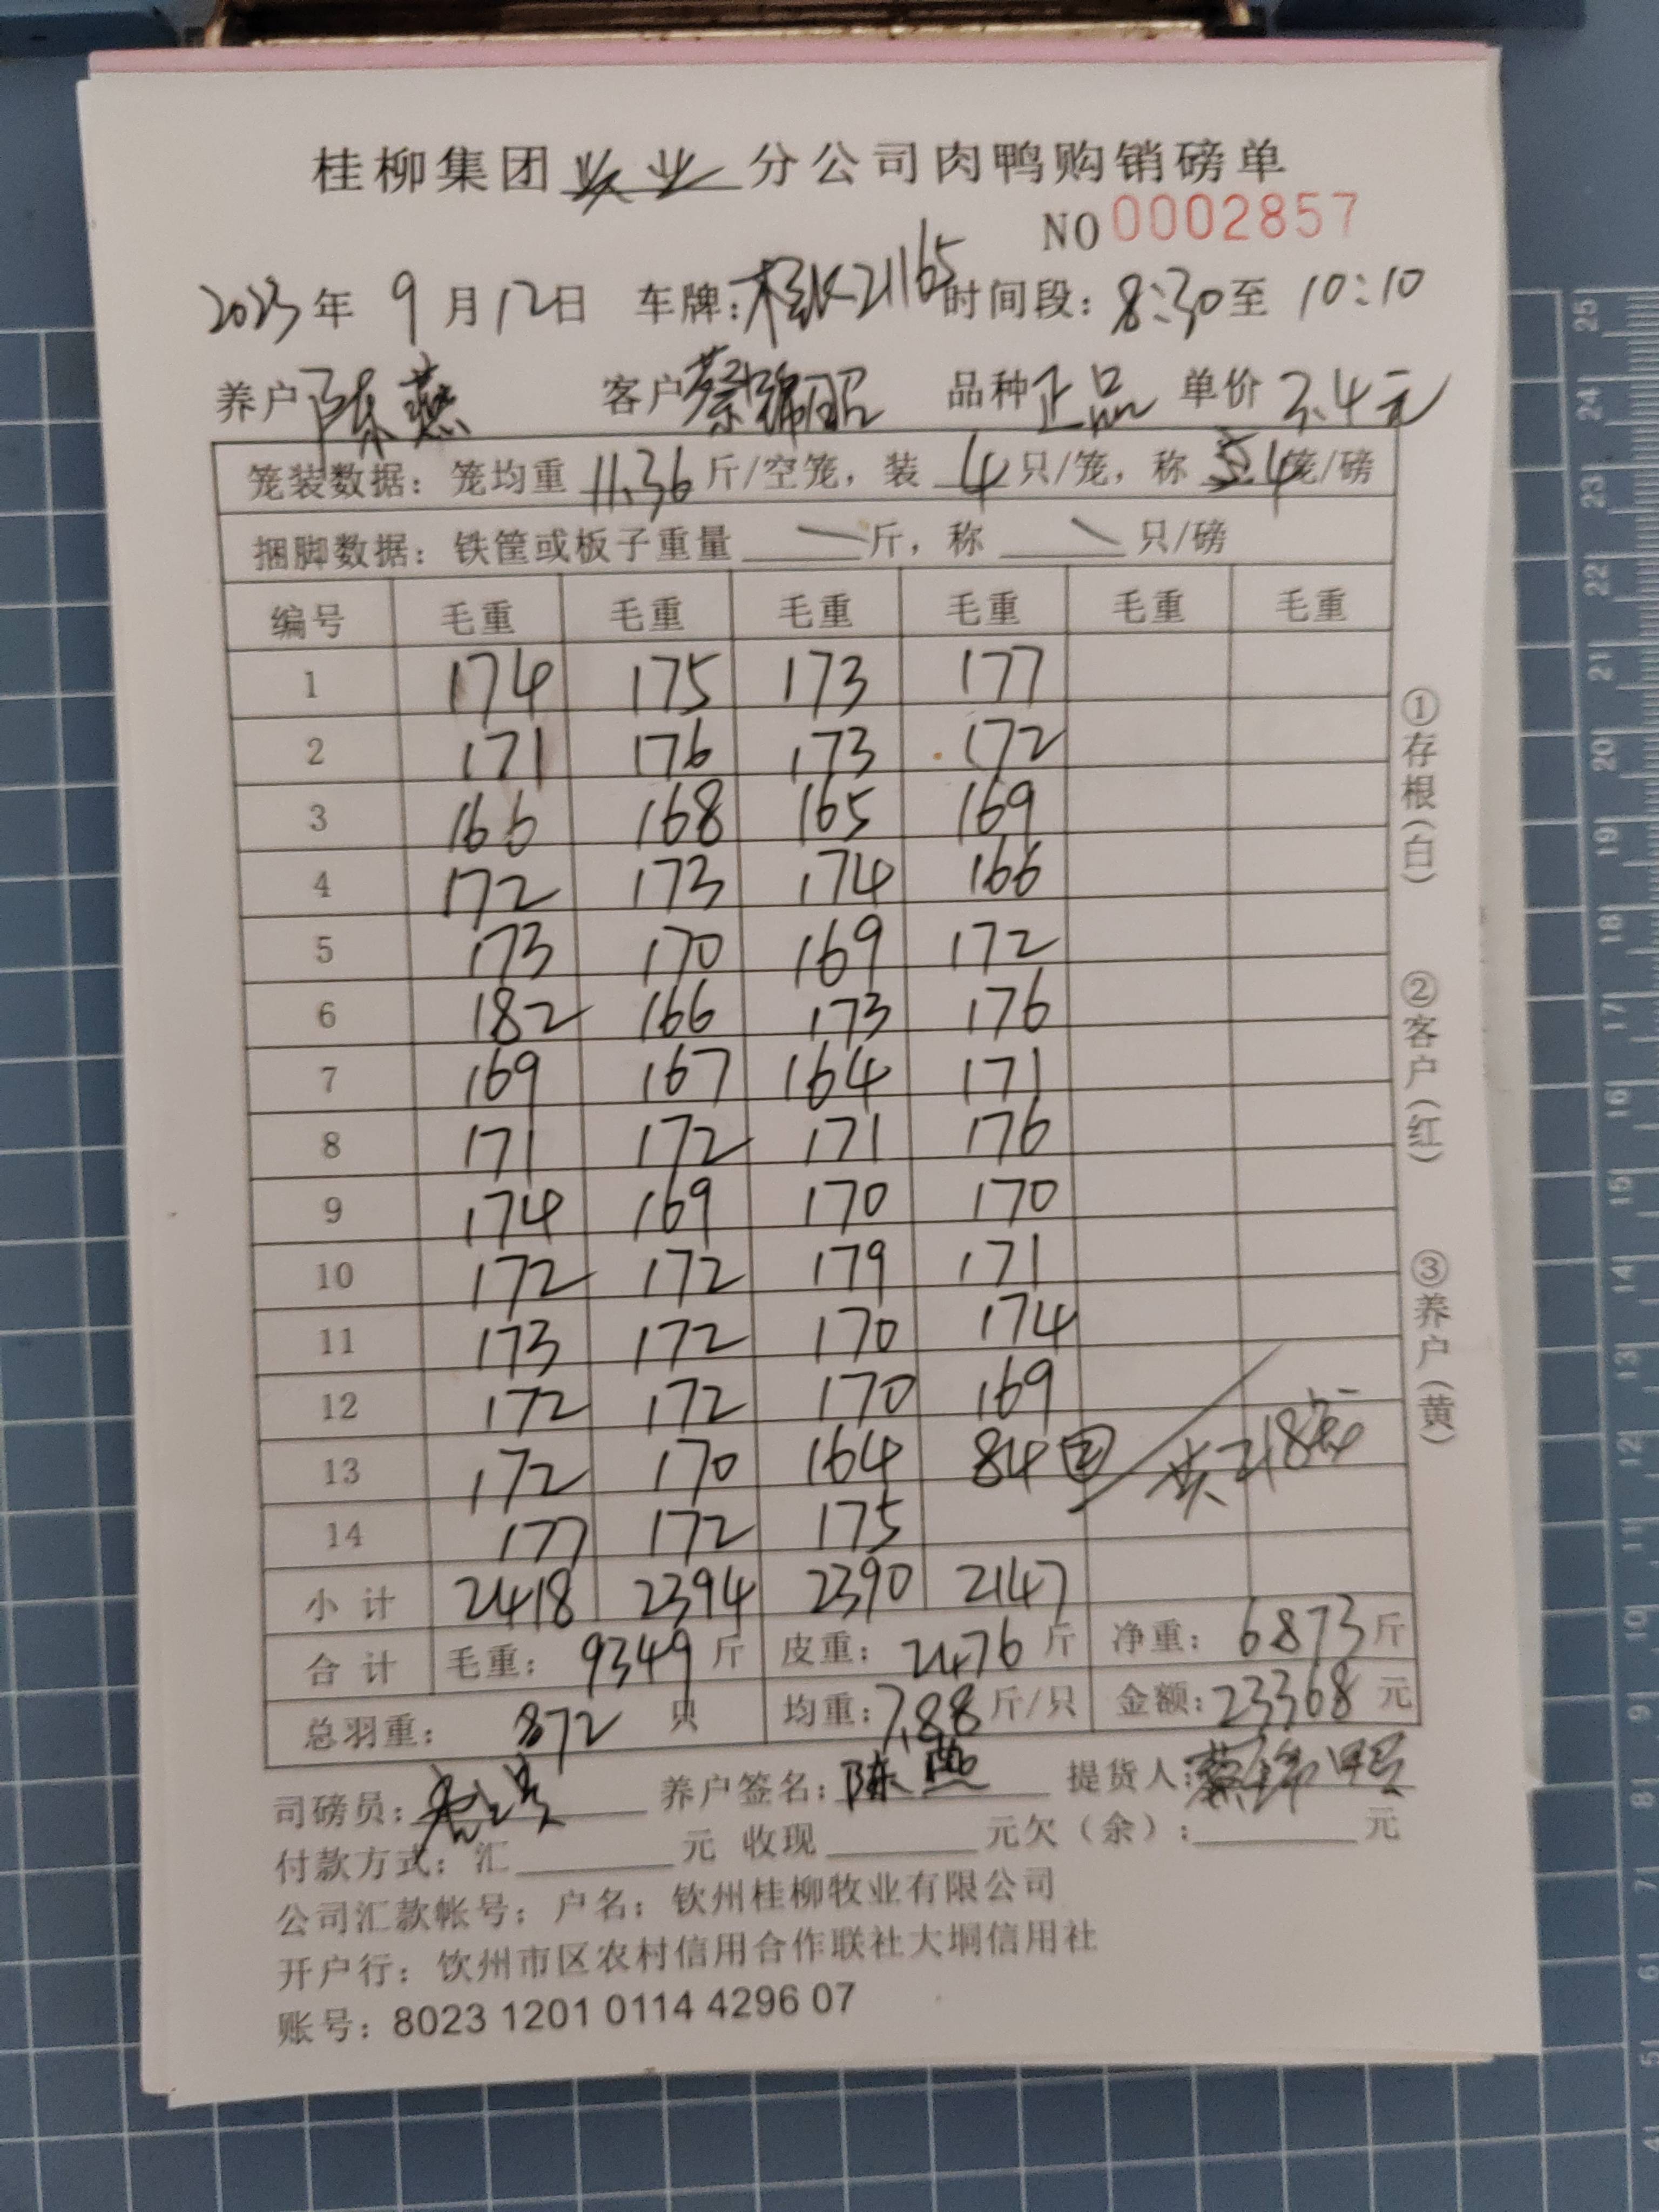 桂柳集团 牧业 分公司肉鸭购销磅单
NO 0002857
2023年 9月12日 车牌:桂K21165 时间段:8:30至 10:10
养户 陈燕 客户 蔡锦昭 品种 正品 单价 3.4元
笼装数据:笼均重 11.36 斤/空笼,装 4 只/笼,称 4笼/磅
捆脚数据:铁筐或板子重量 斤,称 只/磅
编号 毛重 毛重 毛重 毛重 毛重 毛重
1 174 175 173 177
2 171 176 173 172
3 166 168 165 169
4 172 173 174 166
5 173 170 169 172
6 182 166 173 176
7 169 167 164 171
8 171 172 171 176
9 174 169 170 170
10 172 172 179 171
11 173 172 170 174
12 172 172 170 169
13 172 170 164 84 ② 共218笼
14 177 172 175
小计 2418 2394 2390 2147
合计 毛重:9349斤 皮重:2476斤 净重:6873斤
总羽重:872 只 均重:7.88斤/只 金额:23368元
司磅员: 养户签名:陈燕 提货人:蔡锦昭
付款方式:汇 元 收现 元欠(余): 元
公司汇款帐号:户名:钦州桂柳牧业有限公司
开户行:饮州市区农村信用合作联社大垌信用社
账号:8023 1201 0114 4296 07
①存根(白)
②客户(红)
③养户(黄)
25
24
23
22
21
20
19
18
17
16
15
14
13
12
11
10
9
8
7
6